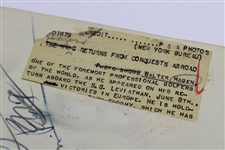 D1679 DETROIT.......P & A PHOTOS
(NEW YORK BUREAU)
RETURNS FROM CONQUESTS ABROAD
PHOTO SHOWS WALTER HAGEN
ONE OF THE FOREMOST PROFESSIONAL GOLFERS
OF THE WORLD, AS HE APPEARED ON HIS RE-
TURN ABOARD THE S.S. LEVIATHAN, JUNE 8TH,
VICTORIES IN EUROPE. HE IS HOLD-
TROPHY, WHICH HE HAS